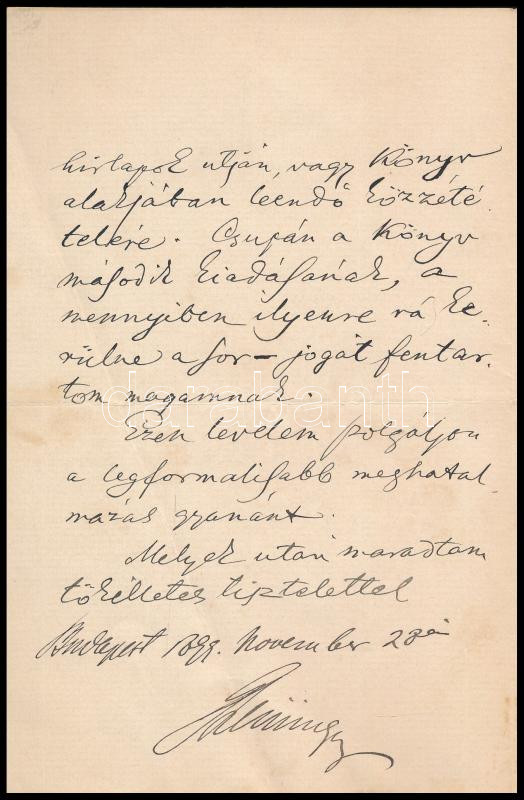 hirlapok utján, vagy Könyv
alakjában leendő közzété
telére. Csupán a Könyv
második kiadásának, a
mennyiben ilyenre rá ke-
rülne a sor – jogát fentar-
tom magamnak.
darabanth
Ezen levelem szolgáljon
a legformalisabb meghatal
mazás gyanánt.
Melyek után maradtam
tökélletes tisztelettel
Budapest 1899. November 28án